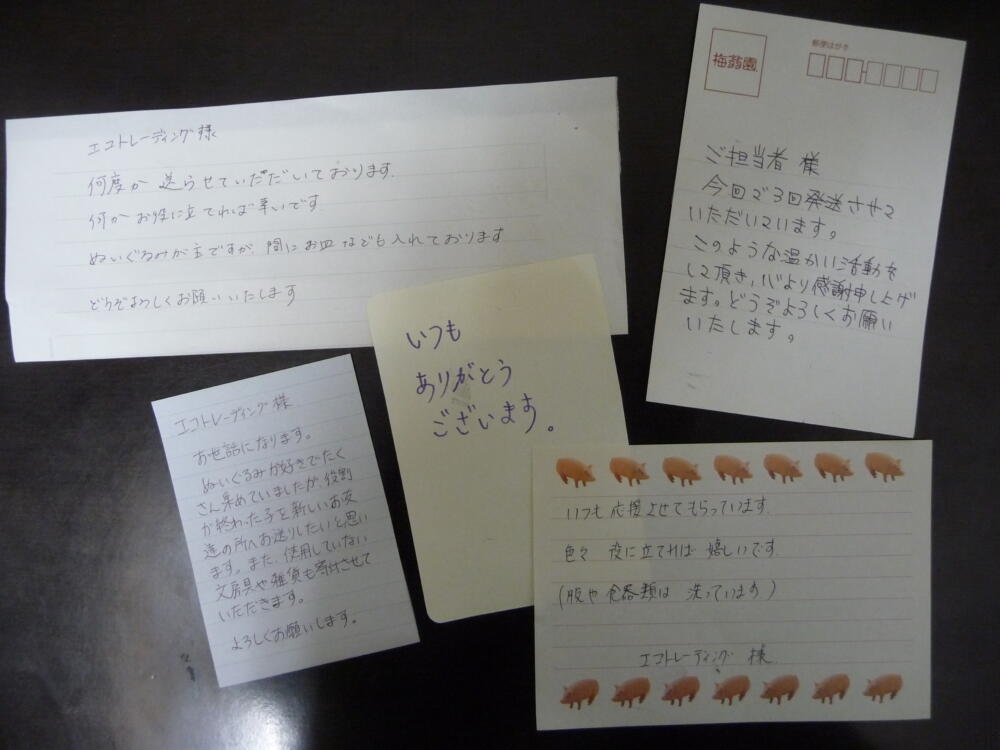 エコトレーディング様
何度か送らせていただいております。
何かお役に立てれば幸いです
ぬいぐるみが主ですが、間にお皿なども入れております
どうぞよろしくお願いいたします
梅蒟園
郵便はがき
ご担当者 様
今回で3回発送させて
いただいています。
このような温かい活動を
して頂き、心より感謝申し上げ
ます。どうぞよろしくお願い
いたします。
いつも
ありがとう
ございます。
エコトレーディング様
お世話になります。
ぬいぐるみが好きでたく
さん集めていましたが、役割
が終わった子を新しいお友
達の所へお送りしたいと思い
ます。また、使用していない
文房具や雑貨も寄付させて
いただきます。
よろしくお願いします。
いつも応援させてもらっています
色々 役に立てれば 嬉しいです
(服や食器類は 洗っています)
エコトレーディング 様